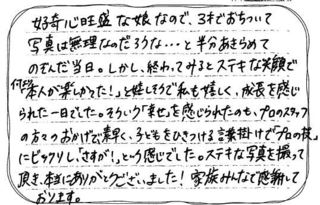 好奇心旺盛な娘なので、3才でおちついて
写真は無理なのだろうな…と半分あきらめて
のぞんだ当日。しかし、終わってみるとステキな笑顔で
何より「本人が楽しかった!」と嬉しそうで私も嬉しく、成長を感じ
られた一日でした。そういう「幸せ」を感じられたのも、プロのスタッフ
の方々のおかげで、素早く、子どもをひきつける言葉掛けで「プロの技」
にビックリし、「さすが!」という感じでした。ステキな写真を撮って
頂き、本当にありがとうございました!家族みんなで感謝して
おります。